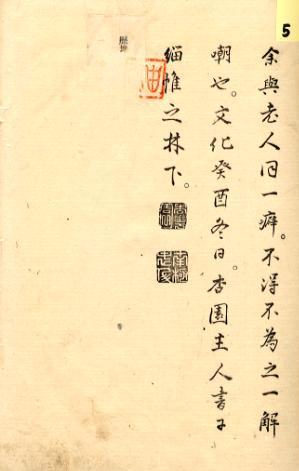 5
余與老人同一癖。不得不為之一解
嘲也。文化癸酉冬日。杏園主人書于
緇帷之林下。